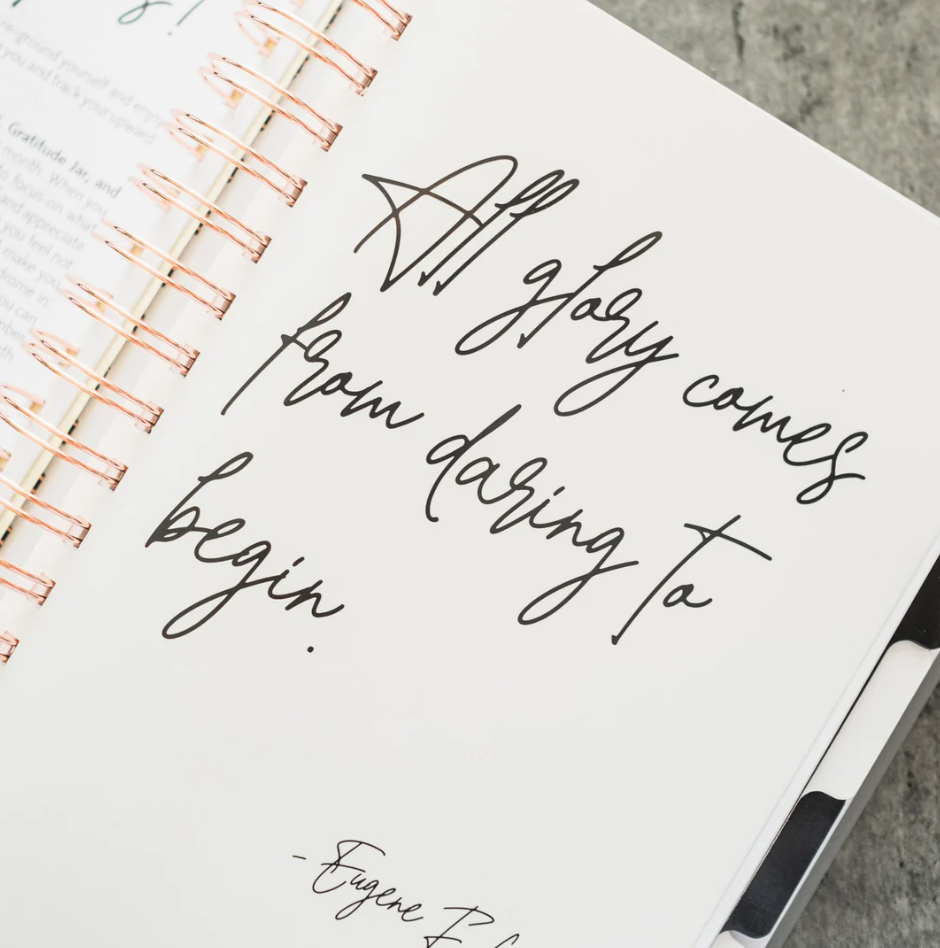 re ground yourself and enjoy
you and track your upward
Gratitude Jar, and
month. When you
to focus on what
and appreciate
you feel not
make you
drome in
you can
All glory comes
from daring to
begin.
- Eugene